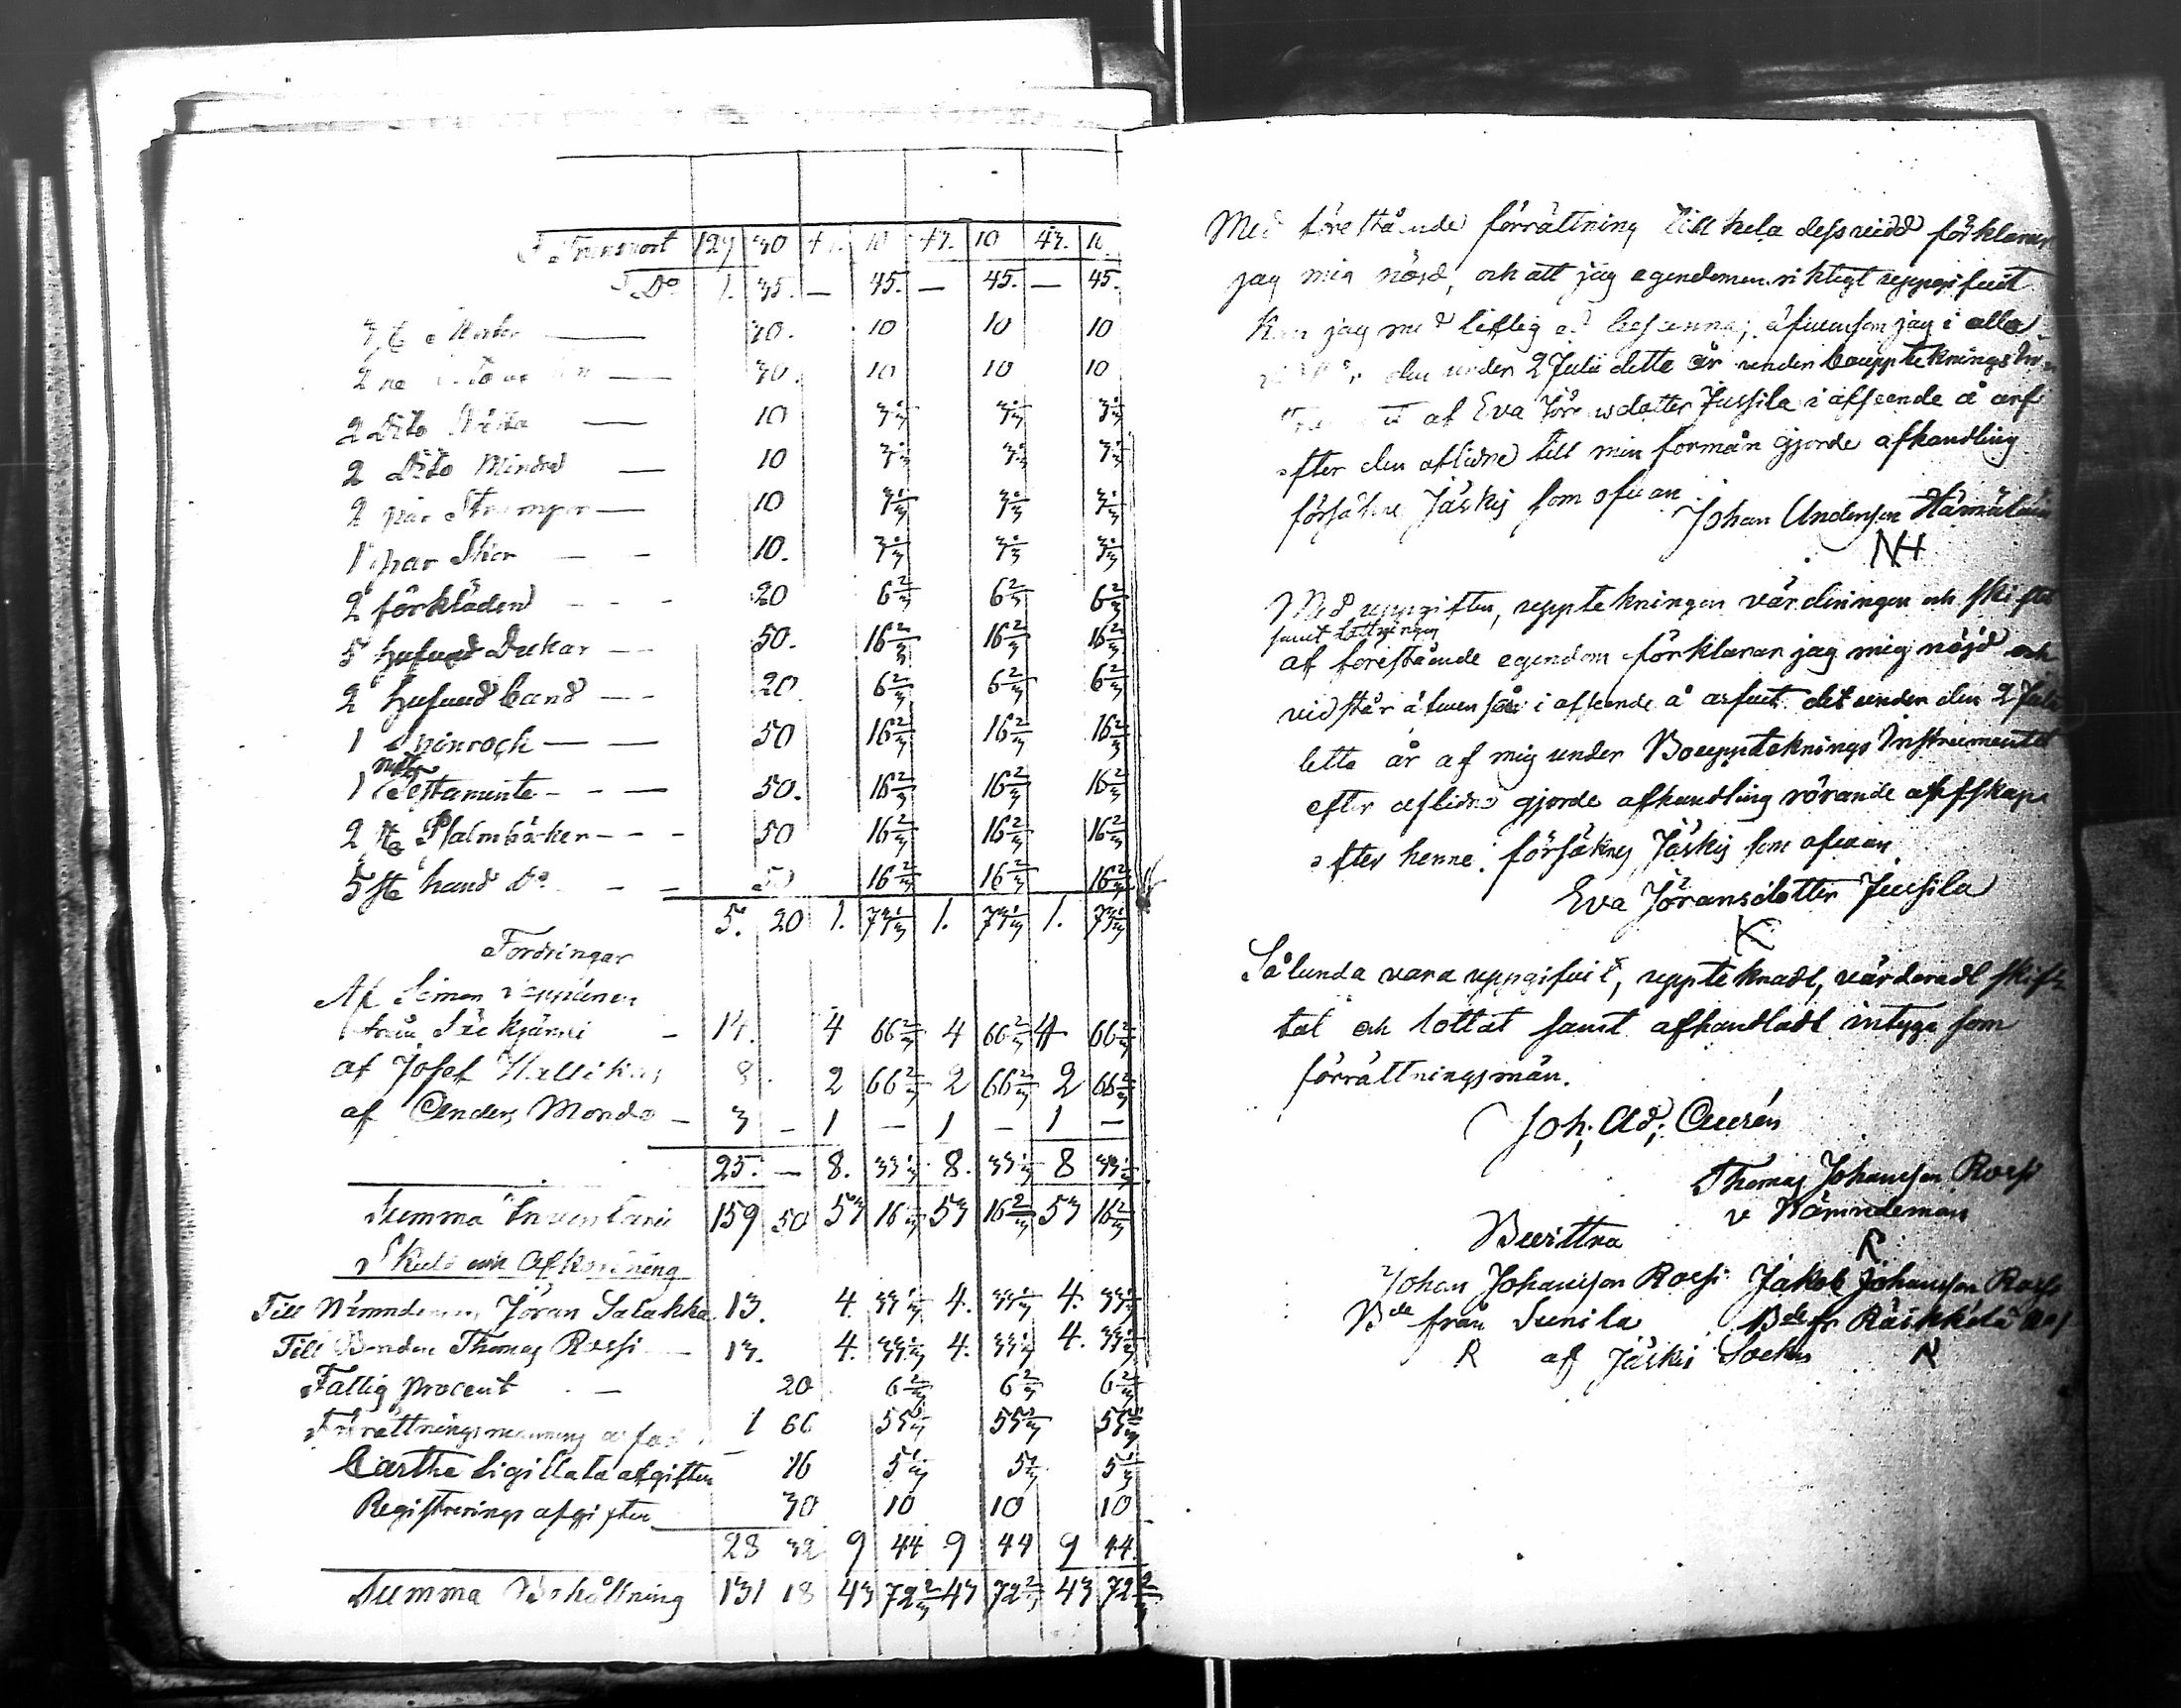 Transport 127 30 10 43. 10 43. 10
Do 1. 35. — 45. — 45. — 45.
30. 10 10 10
2 30. 10 10 10
2 Dito 10 3 1/3 3 1/3 3 1/3
2 Dito Mindre — 10 3 1/3 3 1/3 3 1/3
2 par Strumpor — 10 3 1/3 3 1/3 3 1/3
1 par Skor — — 10. 3 1/3 3 1/3 3 1/3
2 förkläden - - - 20 6 2/3 6 2/3 6 2/3
5 hufvud Dukar — 50. 16 2/3 16 2/3 16 2/3
2 hufvud band — - 20 6 2/3 6 2/3 6 2/3
1 Spinrock — — 50 16 2/3 16 2/3 16 2/3
1 Testamente - - — 50. 16 2/3 16 2/3 16 2/3
2 Psalmböcker - - - 50 16 2/3 16 2/3 16 2/3
5 hand Do - — 50 16 2/3 16 2/3 16 2/3
5. 20 1. 73 1/3 1. 73 1/3 1. 73 1/3
Fordringar
Af Simon
från - 14. 4 66 2/3 4 66 2/3 4 66 2/3
af Josef 8. 2 66 2/3 2 66 2/3 2 66 2/3
af Anders - 3 - 1 — 1 — 1 —
25. — 8. 33 1/3 8. 33 1/3 8 33 1/3
Summa Inventarii 159 50 53 16 2/3 53 16 2/3 53 16 2/3
Skuld och Afkortning
Till Nämndeman Jöran Salakka 13. 4. 33 1/3 4. 33 1/3 4. 33 1/3
Till Bonden Thomas Rossi — 13. 4. 33 1/3 4. 33 1/3 4. 33 1/3
Fattig procent - — 20 6 2/3 6 2/3 6 2/3
Förrättningsmannens 1 66 55 1/3 55 1/3 55 1/3
Cartha Sigillata afgiften 16 5 1/3 5 1/3 5 1/3
Registrerings afgiften 30 10 10 10
28 32 9 44 9 44 9 44
Summa Behållning 131 18 43 72 2/3 43 72 2/3 43 72 2/3
Med förestående förrättning till hela dess vidd förklarar
jag mig nöjd, och att jag egendomen riktigt uppgifvit
kan jag med liflig ed besanna; äfvensom jag i allo
den under 2 Julii dette år under bouppteknings
af Eva Jöransdotter Jussila i afseende å arf
efter den aflidne till min förmån gjorde afhandling
försäkras Jäskis som ofvan
Johan Andersson Hämäläin
NH
Med uppgiften, upptekningen värderingen och skiftet
samt lottningen
af förestående egendom förklarar jag mig nöjd och
vidstår äfven så i afseende å arfvet det under den 2 Julii
detta år af mig under Boupptekningsinstrumentet
efter aflidne gjorde afhandling rörande arfskap
efter henne. försäkras Jäskis som ofvan
Eva Jöransdotter Jussila
K
Sålunda vara uppgifvit, uppteknadt, värderadt skif-
tat och lottat samt afhandladt intyga som
förrättningsmän.
Joh: Ad:
Thomas Johansson Rossi
v Nämndeman
R
Bevittna
Johan Johansson Rossi Jakob Johansson Rossi
Bde från Sunila Bde fr Räikkölä
R af Jäskis Sockn R